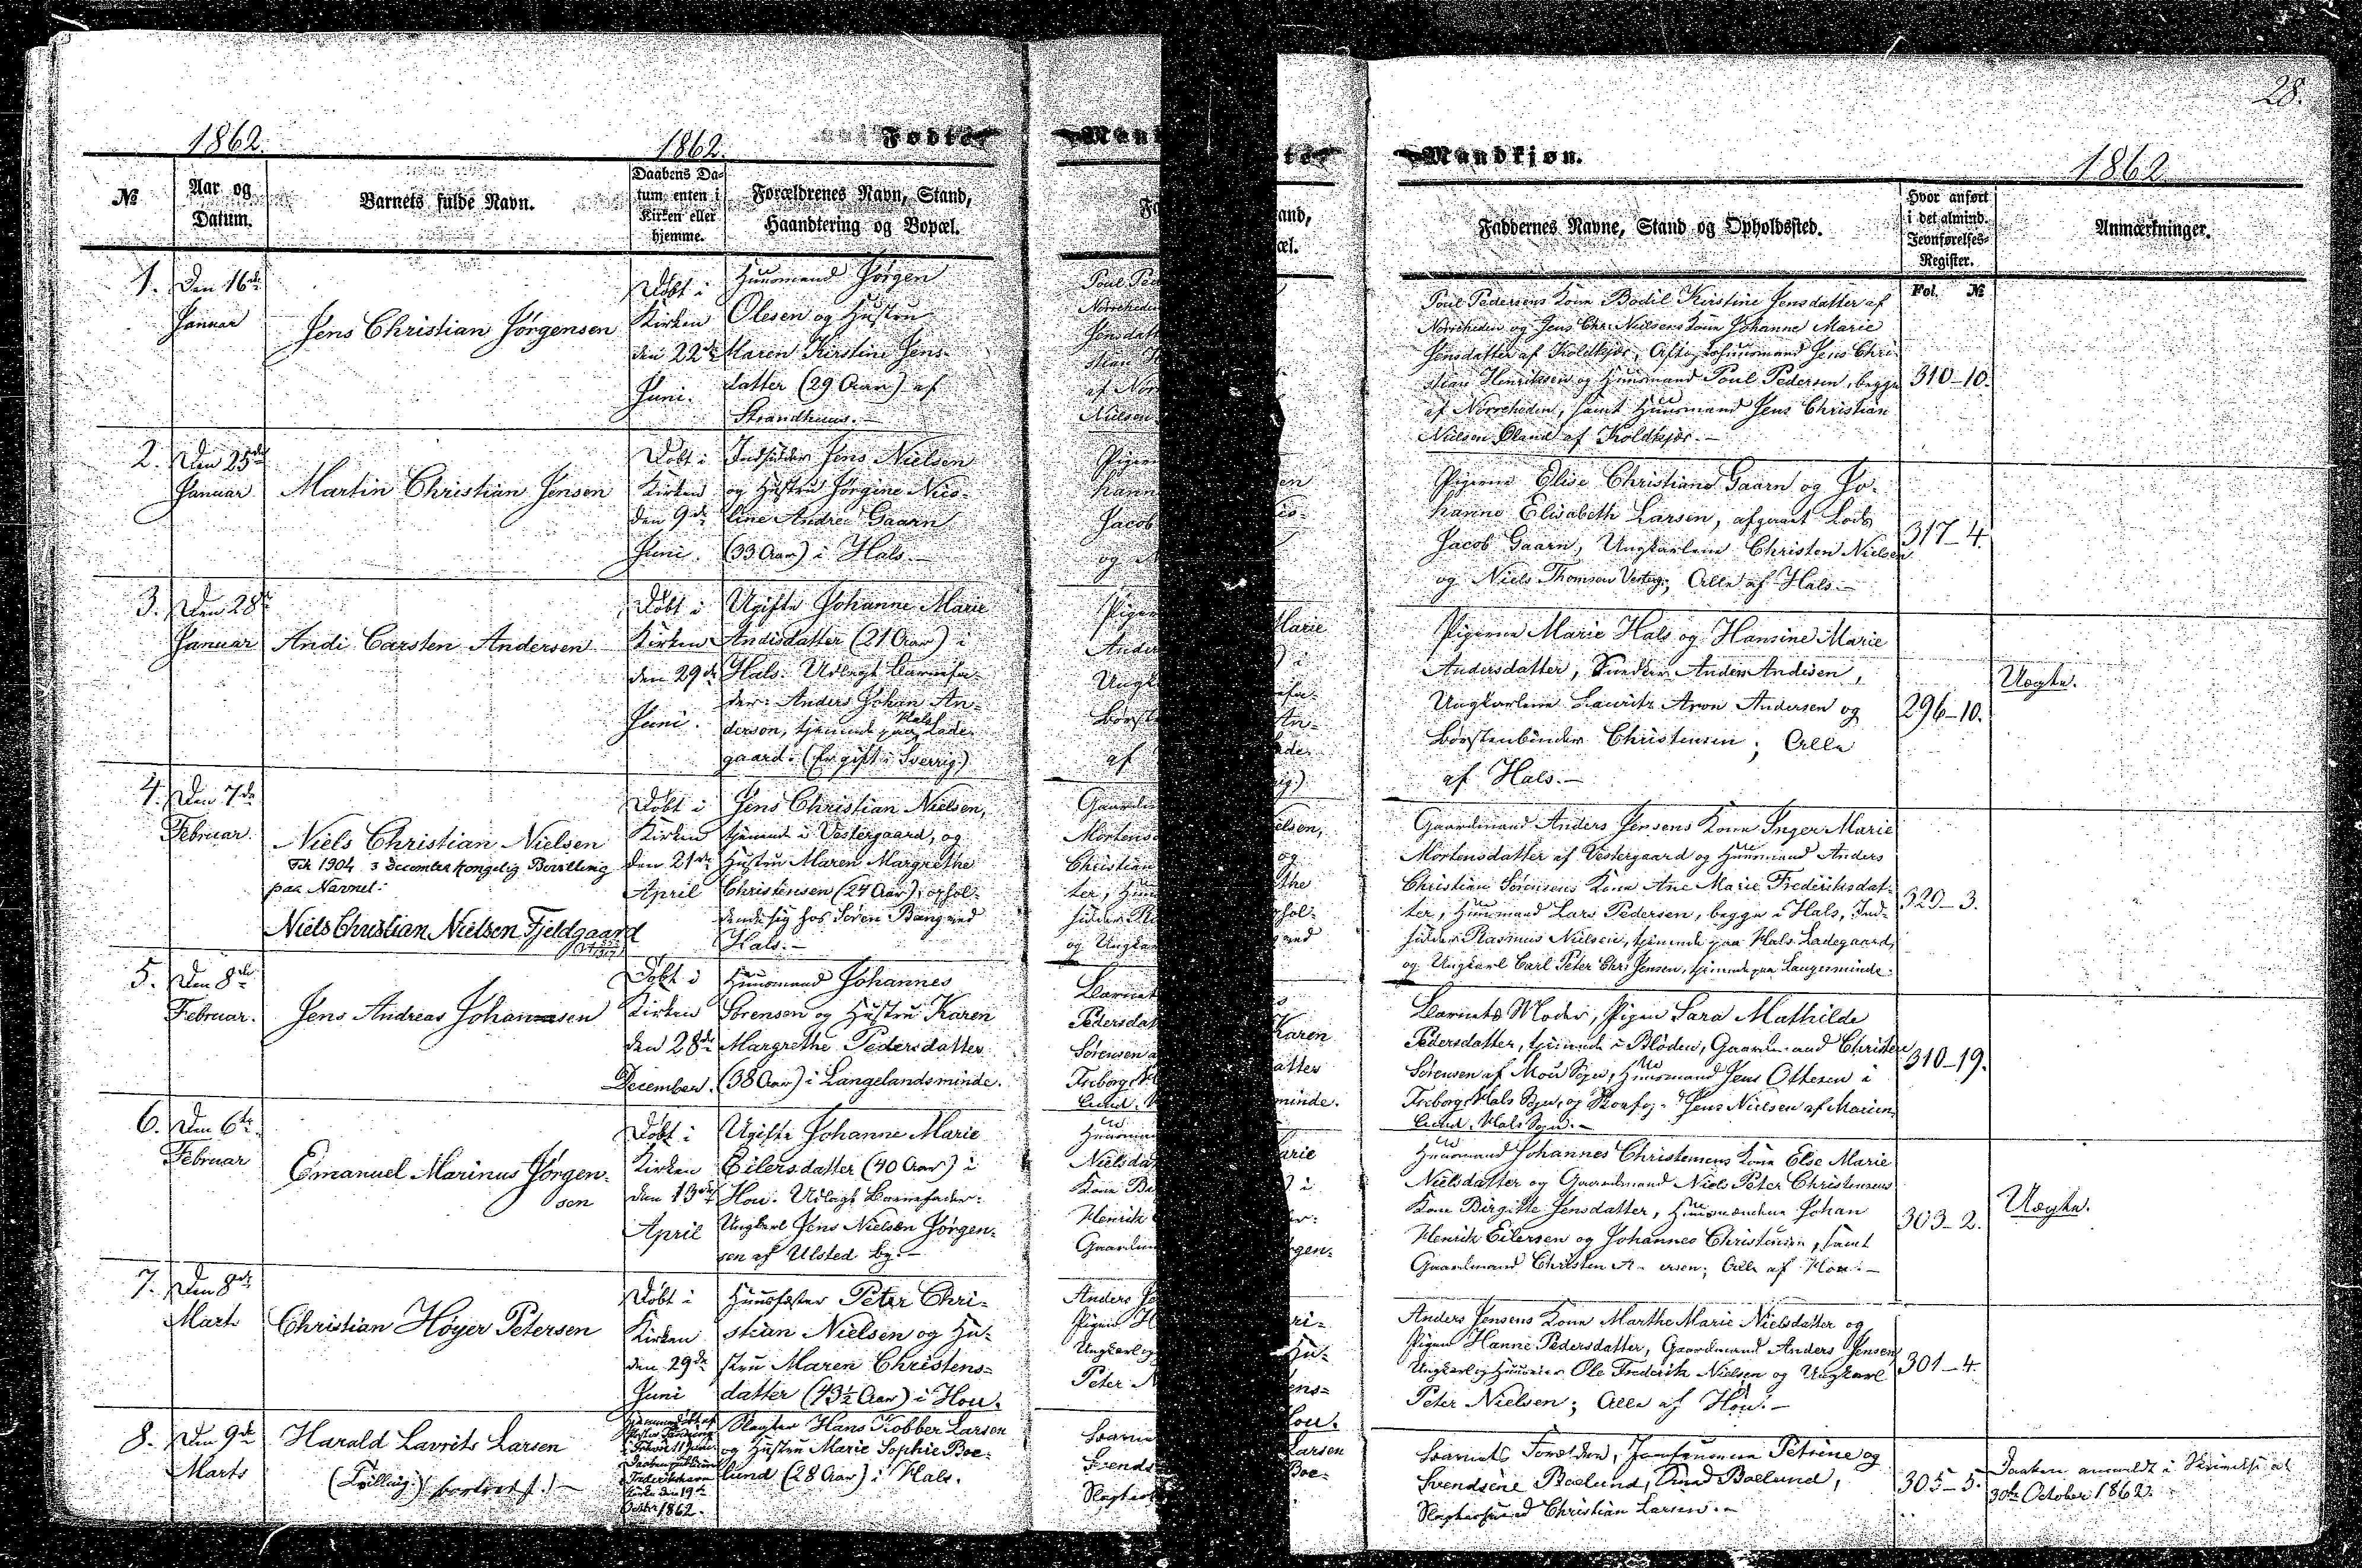 28.
1862.
1862.
Fødte
Mandkjøn.
1862
№
Aar og
Datum.
Barnets fulde Navn.
Daabens Da-
tum enten i
Kirken eller
hjemme.
Forældrenes Navn, Stand,
Haandtering og Bopæl.
Faddernes Navne, Stand og Opholdssted.
Hvor anført
i det almind.
Jevnførelses-
Register.
Anmærkninger.
Fol. №
1. Den 16de
Januar
Jens Christian Jørgensen
Døbt i
Kirken
den 22de
Juni.
Huusmand Jørgen
Olesen og Hustru
Maren Kirstine Jens-
datter (29 Aar) af
Strandhuus.-
Poul Pedersens Kone Bodil Kirstine Jensdatter af
Nørreheden og Jens Chr. Nielsens Kone Johanne Marie
Jensdatter af Koldkjær, Aftægtshuusmand Jens Chri-
stian Henriksen og Huusmand Poul Pedersen, begge
af Nørreheden, samt Huusmand Jens Christian
Nielsen Øland af Koldkjær.-
310-10.
2. Den 25de
Januar
Martin Christian Jensen
Døbt i
Kirken
den 9de
Juni.
Indsidder Jens Nielsen
og Hustru Jørgine Nico-
line Andrea Gaarn
(33 Aar) i Hals.-
Pigerne Elise Christiane Gaarn og Jo-
hanne Elisabeth Larsen, afgaaet Lods
Jacob Gaarn, Ungkarlene Christen Nielsen
og Niels Thomsen Alle af Hals.-
317-4.
3. Den 28de
Januar
Andi Carsten Andersen
Døbt i
Kirken
den 29de
Juni.
Ugifte Johanne Marie
Andisdatter (21 Aar) i
Hals. Udlagt Barnefa-
der: Anders Johan An-
derson, tjenende paa Hals Lade-
gaard. (Er gift i Sverrig.)
Pigerne Marie Hals og Hansine Marie
Andersdatter, Anders Andisen,
Ungkarlene Lauritz Aron Andersen og
Børstenbinder Christensen; Alle
af Hals.-
296-10.
Uægte.
4. Den 7de
Februar.
Niels Christian Nielsen
Fik 1904 3 December kongelig Bevilling
paa Navnet:
Niels Christian Nielsen Fjeldgaard
Døbt i
Kirken
den 21de
April
Jens Christian Nielsen,
tjenende i Vestergaard, og
Hustru Maren Margrethe
Christensen (24 Aar); ophol-
dende sig hos Søren Bang ved
Hals.-
Gaardmand Anders Jensens Kone Inger Marie
Mortensdatter af Vestergaard og Huusmand Anders
Christian Sørensens Kone Ane Marie Frederiksdat-
ter, Huusmand Lars Pedersen, begge i Hals, Ind-
sidder Rasmus Nielsen, tjenende paa Hals Ladegaard,
og Ungkarl Carl Peter Chr. Jensen, tjenende paa Langesminde.
320-3.
5. Den 8de
Februar.
Jens Andreas Johannesen
Døbt i
Kirken
den 28de
December.
Huusmand Johannes
Sørensen og Hustru Karen
Margrethe Pedersdatter
(38 Aar) i Langelandsminde.
Barnets Moder, Pigen Sara Mathilde
Pedersdatter, tjenende i Bløden, Gaardmand Christen
Sørensen af Mou Sogn, Huusmand Jens Ottesen i
Friborg, Hals Sogn, og Skovfog. Jens Nielsen af Marien-
lund, Hals Sogn.-
310-19.
6. Den 6te
Februar
Emanuel Marinus Jørgen-
sen
Døbt i
Kirken
den 13de
April
Ugifte Johanne Marie
Eilersdatter (40 Aar) i
Hou. Udlagt Barnefader:
Ungkarl Jens Nielsen Jørgen-
sen af Ulsted By.-
Huusmand Johannes Christensens Kone Else Marie
Nielsdatter og Gaardmand Niels Peter Christensens
Kone Birgitte Jensdatter, Huusmændene Johan
Henrik Eilersen og Johannes Christensen, samt
Gaardmand Christen Alle af Hou.-
303-2.
Uægte.
7. Den 8de
Marts
Christian Høyer Petersen
Døbt i
Kirken
den 29de
Juni
Huusfæster Peter Chri-
stian Nielsen og Hu-
stru Maren Christens-
datter (43½ Aar) i Hou.
Anders Jensens Kone Marthe Marie Nielsdatter og
Pigen Hanne Pedersdatter, Gaardmand Anders Jensen,
Ungkarl og Huuseier Ole Frederik Nielsen og Ungkarl
Peter Nielsen; Alle af Hou.-
301-4.
8. Den 9de
Marts
Harald Lavrits Larsen
(Tvilling.)
Kirke den 19de
October 1862.
Slagter Hans Kobber Larsen
og Hustru Marie Sophie Boe-
lund (28 Aar) i Hals.
Barnets Forældre, Jomfruerne Petrine og
Svendsine Boelund, Boelund,
Slagtersvend Christian Larsen.-
305-5.
Daaben anmeldt i Skrivelse af
30te October 1862.